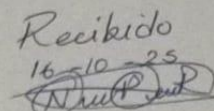 Recibido
16-10-25